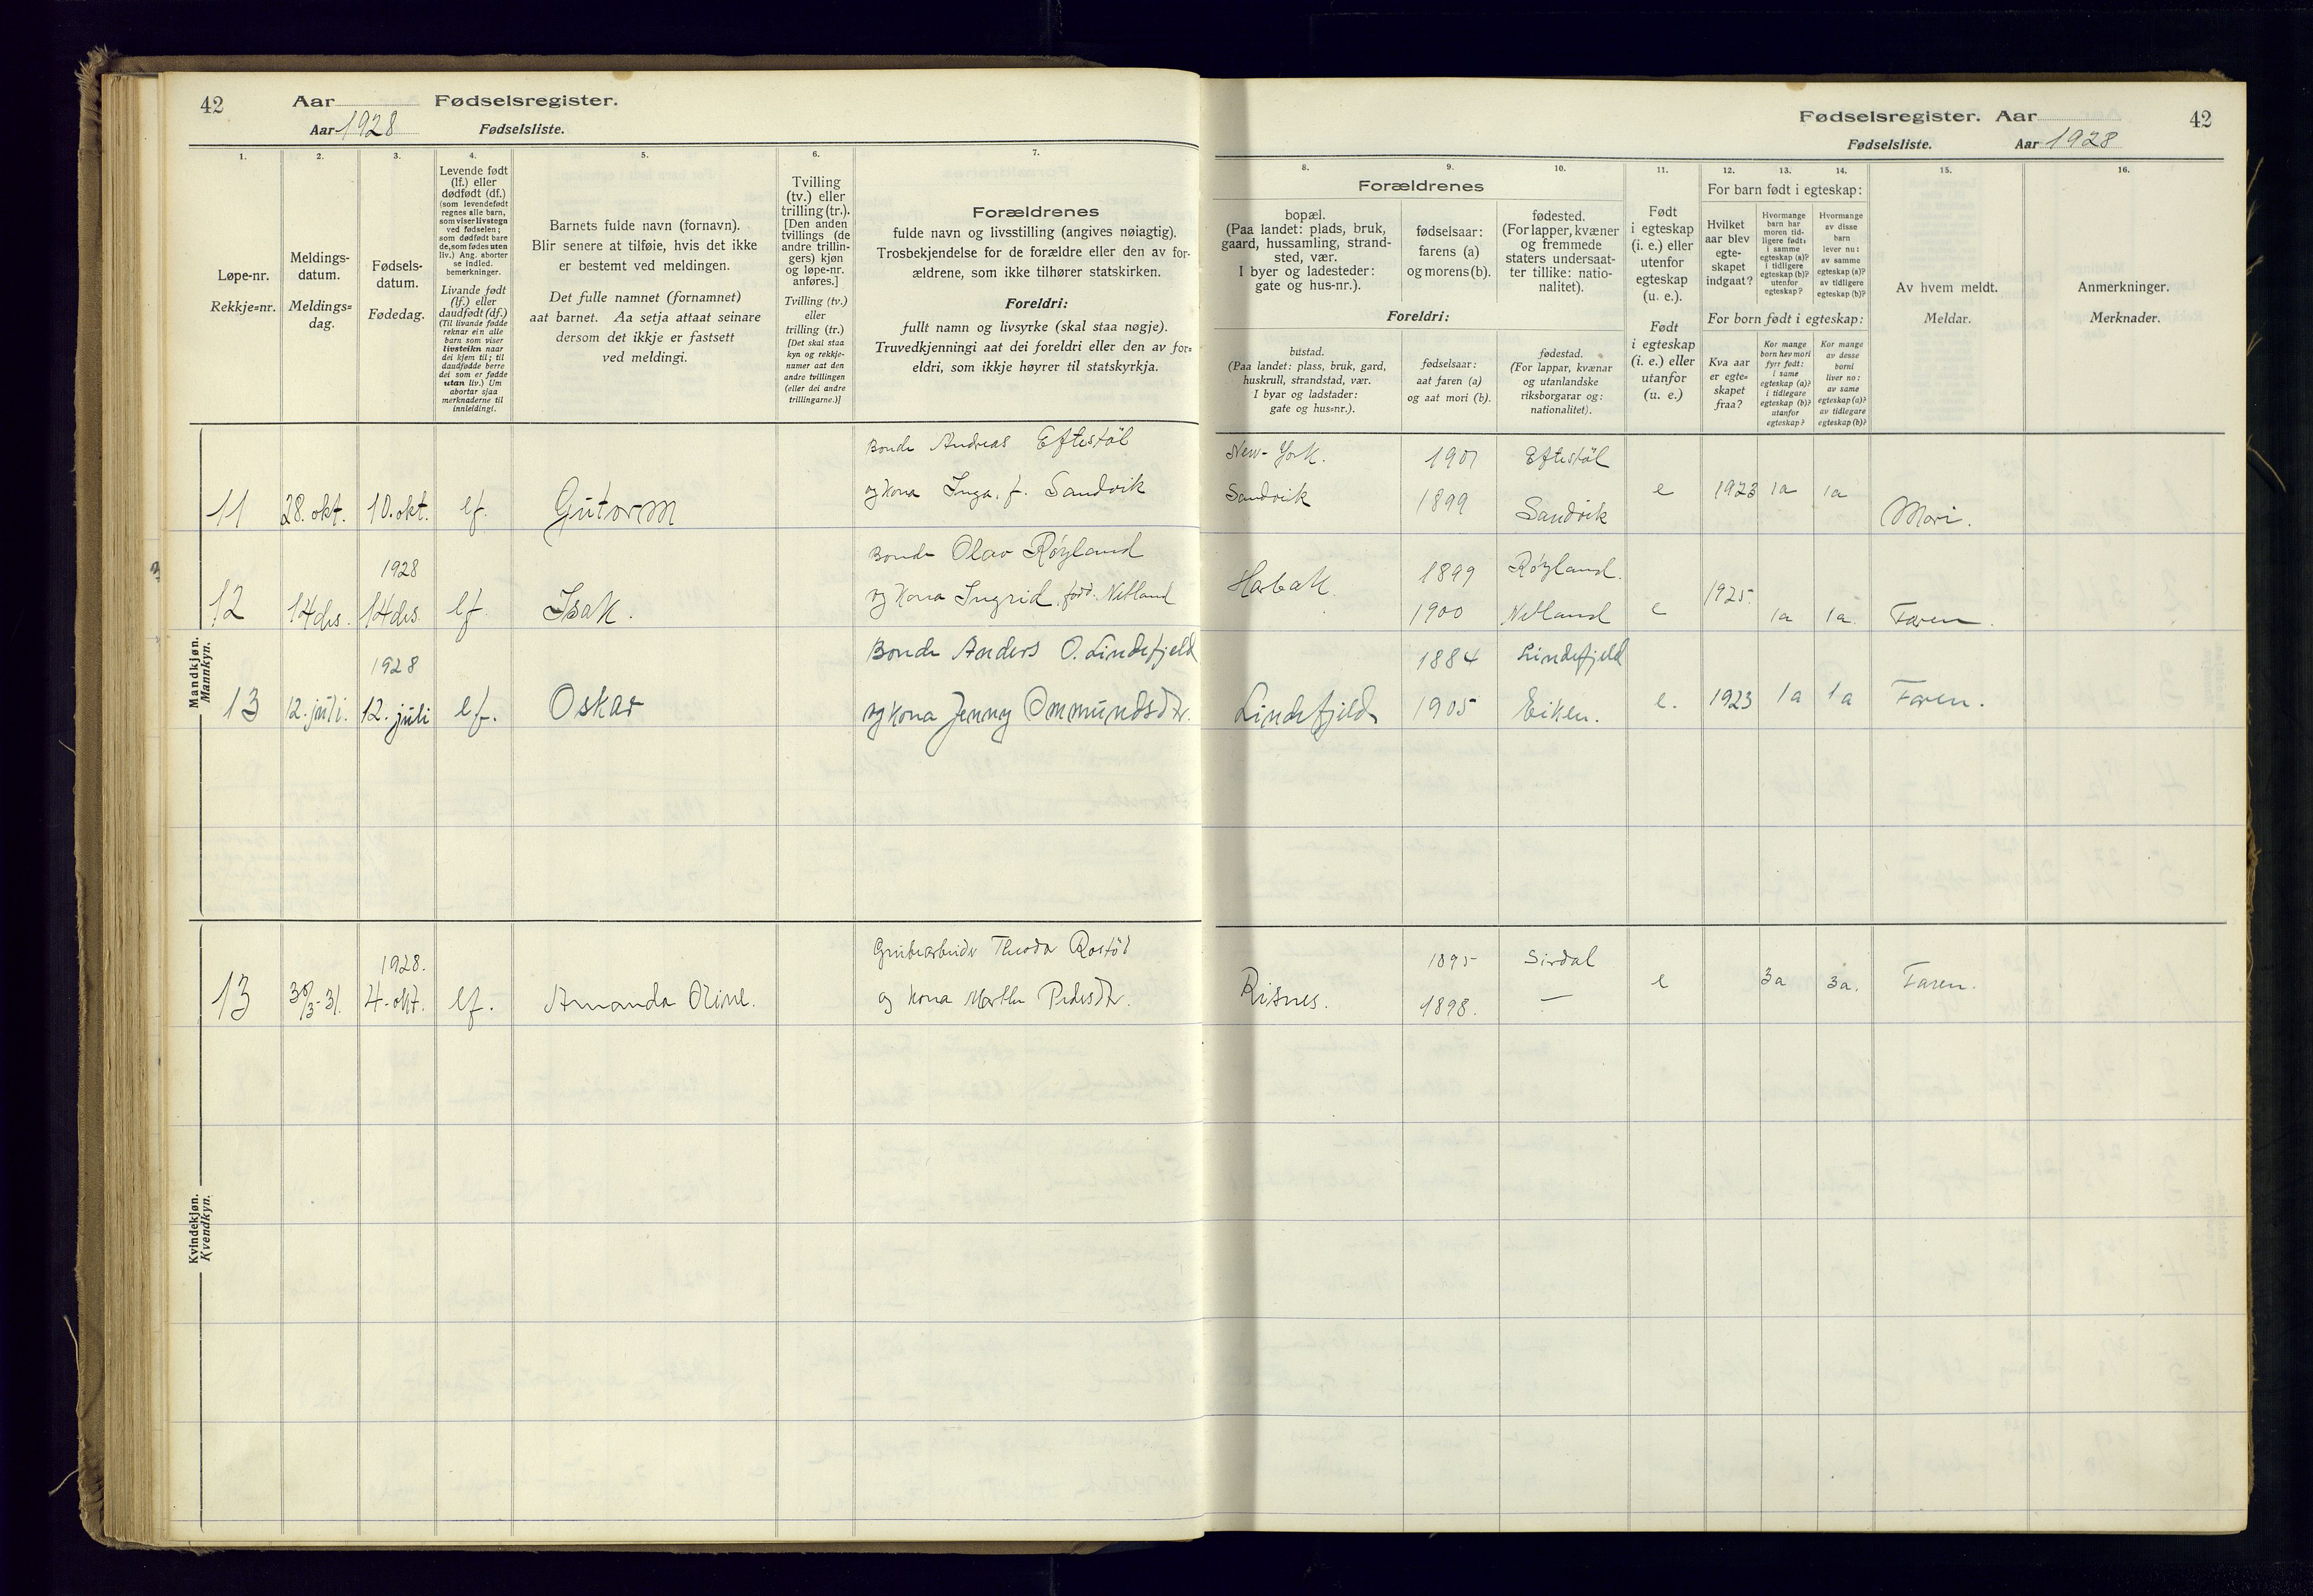 42 Aar Fødselsregister.
Aar 1928 Fødselsliste.
1. 2. 3. 4. 5. 6. 7.
Løpe-nr.
Rekkje=nr.
Meldings-
datum.
Meldings=
dag.
Fødsels-
datum.
Fødedag.
Levende født
(lf.) eller
dødfødt (df.)
(som levendefødt
regnes alle barn,
som viser livstegn
ved fødselen;
som dødfødt bare
de, som fødes uten
liv.) Ang. aborter
se indled.
bemerkninger.
Livande født
(lf.) eller
daudfødt (df.)
(Til livande fødde
reknar ein alle
barn som viser
livsteikn naar
dei kjem til; til
daudfødde berre
dei som er fødde
utan liv.) Um
abortar sjaa
merknaderne til
innleidingi.
Barnets fulde navn (fornavn).
Blir senere at tilføie, hvis det ikke
er bestemt ved meldingen.
Det fulle namnet (fornamnet)
aat barnet. Aa setja attaat seinare
dersom det ikkje er fastsett
ved meldingi.
Tvilling
(tv.) eller
trilling (tr.).
[Den anden
tvillings (de
andre trillin-
gers) kjøn
og løpe-nr.
anføres.]
Tvilling (tv.)
eller
trilling (tr.)
[Det skal staa
kyn og rekkje-
numer aat den
andre tvillingen
(eller dei andre
trillingarne.)]
Forældrenes
fulde navn og livsstilling (angives nøiagtig).
Trosbekjendelse for de forældre eller den av for-
ældrene, som ikke tilhører statskirken.
Foreldri:
fullt namn og livsyrke (skal staa nøgje).
Truvedkjenningi aat dei foreldri eller den av for=
eldri, som ikkje høyrer til statskyrkja.
Mandkjøn.
Mannkyn.
Bonde Andreas Eftestøl
11 28. okt. 10. okt. lf. Gutorm og kona Inga, f. Sandvik
1928 Bonde Olav Røyland
12 14 des. 14 des. lf. Isak. og kona Ingrid, født Netland
1928 Bonde Anders O. Lindefjeld
13 12. juli. 12. juli lf. Oskar og kona Jenny Ommundsdtr.
Kvindekjøn.
Kvendkyn.
1928. Grubearbeider Theodor Rostøl
13 30/3-31. 4. okt. lf. Amanda Oline. og kona Marthe Pedersdtr.
Fødselsregister. Aar 42
Fødselsliste. Aar 1928
8. 9. 10. 11. 12. 13. 14. 15. 16.
Forældrenes
bopæl.
(Paa landet: plads, bruk,
gaard, hussamling, strand-
sted, vær.
I byer og ladesteder:
gate og hus-nr.).
fødselsaar:
farens (a)
og morens (b).
fødested.
(For lapper, kvæner
og fremmede
staters undersaat-
ter tillike: natio-
nalitet).
Foreldri:
bustad.
(Paa landet: plass, bruk, gard,
huskrull, strandstad, vær.
I byar og ladstader:
gate og hus=nr.).
fødselsaar:
aat faren (a)
og aat mori (b).
fødestad.
(For lappar, kvænar
og utanlandske
riksborgarar og:
nationalitet).
Født
i egteskap
(i. e.) eller
utenfor
egteskap
(u. e.).
Født
i egteskap
(i. e.) eller
utanfor
(u. e.)
For barn født i egteskap:
Hvilket
aar blev
egte-
skapet
indgaat?
Hvormange
barn har
moren tid-
ligere født:
i samme
egteskap (a)?
i tidligere
egteskap (b)?
utenfor
egteskap?
Hvormange
av disse
barn
lever nu:
av samme
egteskap (a)?
av tidligere
egteskap (b)?
For born født i egteskap:
Kva aar
er egte=
skapet
fraa?
Kor mange
born hev mori
fyrr født:
i same
egteskap (a)?
i tidlegare
egteskap (b)?
utanfor
egteskap?
Kor mange
av desse
borni
liver no:
av same
egteskap (a)?
av tidlegare
egteskap (b)?
Av hvem meldt.
Meldar.
Anmerkninger.
Merknader.
New-York. 1901 Eftestøl
Sandvik 1899 Sandvik e 1923 1a 1a Mori.
Harbakk 1899 Røyland.
1900 Netland e 1925. 1a 1a. Faren.
1884 Lindefjeld
Lindefjeld 1905 Eiken. e. 1923 1a 1a Faren.
1895 Sirdal
Risnes. 1898. — e 3a 3a. Faren.